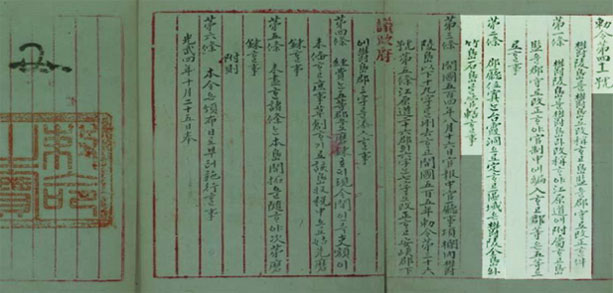 勅令第四十一號
鬱陵島를鬱島로改稱ᄒᆞ고島監을郡守로改正ᄒᆞᆫ件
第一條 鬱陵島를鬱島라改稱ᄒᆞ야江原道에附屬ᄒᆞ고島
監을郡守로改正ᄒᆞ야官制中에編入ᄒᆞ고郡等은五等으
로ᄒᆞᆯ事
第二條 郡廳位寘ᄂᆞᆫ台霞洞으로定ᄒᆞ고區域은鬱陵全島와
竹島石島를管轄ᄒᆞᆯ事
第三條 開國五百四年八月十六日官報中官廳事項欄內鬱
陵島以下十九字를刪去ᄒᆞ고開國五百五年勅令第三十六
號第五條江原道二十六郡의六字ᄂᆞᆫ七字로改正ᄒᆞ고安峽郡下
議政府
에鬱島郡三字를添入ᄒᆞᆯ事
第四條 經費ᄂᆞᆫ五等郡으로磨鍊호ᄃᆡ現今間인즉吏額이
未備ᄒᆞ고庶事草創ᄒᆞ기로該島收稅中으로姑先磨
鍊ᄒᆞᆯ事
第五條 未盡ᄒᆞᆫ諸條ᄂᆞᆫ本島開拓을隨ᄒᆞ야次第磨
鍊ᄒᆞᆯ事
附則
第六條 本令은頒布日로부터施行ᄒᆞᆯ事
光武四年十月二十五日奉